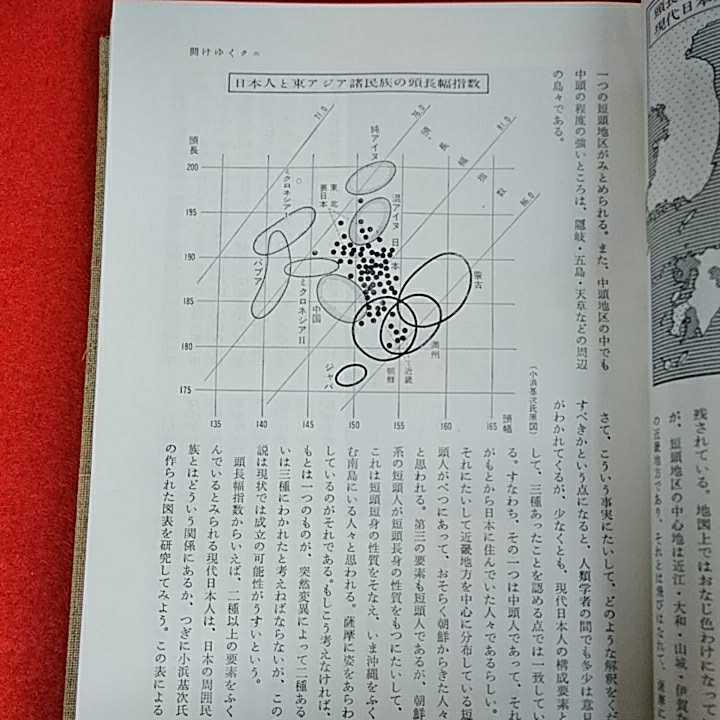 開けゆくクニ
日本人と東アジア諸民族の頭長幅指数
頭長
200
195
190
185
180
175
135
140
145
150
155
160
165
頭幅
71.0
76.0
81.0
86.0
頭長幅指数
純アイヌ
混アイヌ
日本
東北
裏日本
ミクロネシアI
パプア
ミクロネシアII
中国
ジャバ
朝鮮
近畿
満州
蒙古
(小浜基次氏原図)
一つの短頭地区がみとめられる。また、中頭地区の中でも
中頭の程度の強いところは、隠岐・五島・天草などの周辺
の島々である。
さて、こういう事実にたいして、どのような解釈をくだ
すべきかという点になると、人類学者の間でも多少は意見
がわかれてくるが、少なくとも、現代日本人の構成要素と
して、三種あったことを認める点では一致してい
る。すなわち、その一つは中頭人であって、それ
がもとから日本に住んでいた人々であるらしい。
それにたいして近畿地方を中心に分布している短
頭人がべつにあって、おそらく朝鮮からきた人々
と思われる。第三の要素も短頭人であるが、朝鮮
系の短頭人が短頭長身の性質をもつにたいして、
これは短頭短身の性質をそなえ、いま沖縄をふく
む南島にいる人々と思われる。薩摩に姿をあらわ
しているのがそれである。もしこう考えなければ、
もとは一つのものが、突然変異によって二種ある
いは三種にわかれたと考えねばならないが、この
説は現状では成立の可能性がうすいという。
頭長幅指数からいえば、二種以上の要素をふく
んでいるとみられる現代日本人は、日本の周囲民
族とはどういう関係にあるか、つぎに小浜基次氏
の作られた図表を研究してみよう。この表による
現代日本
残されている。地図上ではおなじ色わけになって
が、短頭地区の中心地は近江・大和・山城・伊賀
の近畿地方であり、それとは飛びはなれて、薩摩